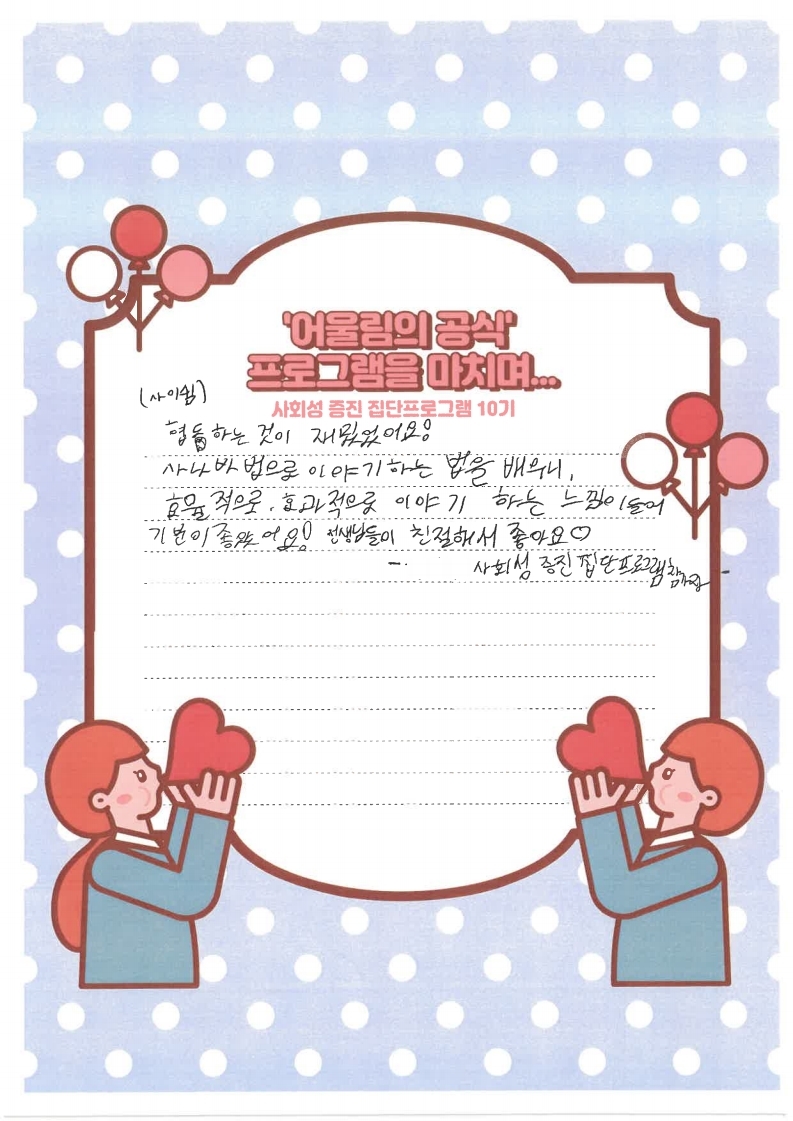 '어울림의 공식'
프로그램을 마치며...
사회성 증진 집단프로그램 10기
(사이쉼)
협동하는 것이 재밌었어요!
사나바 법으로 이야기하는 법을 배우니,
효율적으로, 효과적으로 이야기 하는 느낌이들어
기분이 좋았어요! 선생님들이 친절해서 좋아요♡
- 사회성 증진 집단프로그램 참가자 -